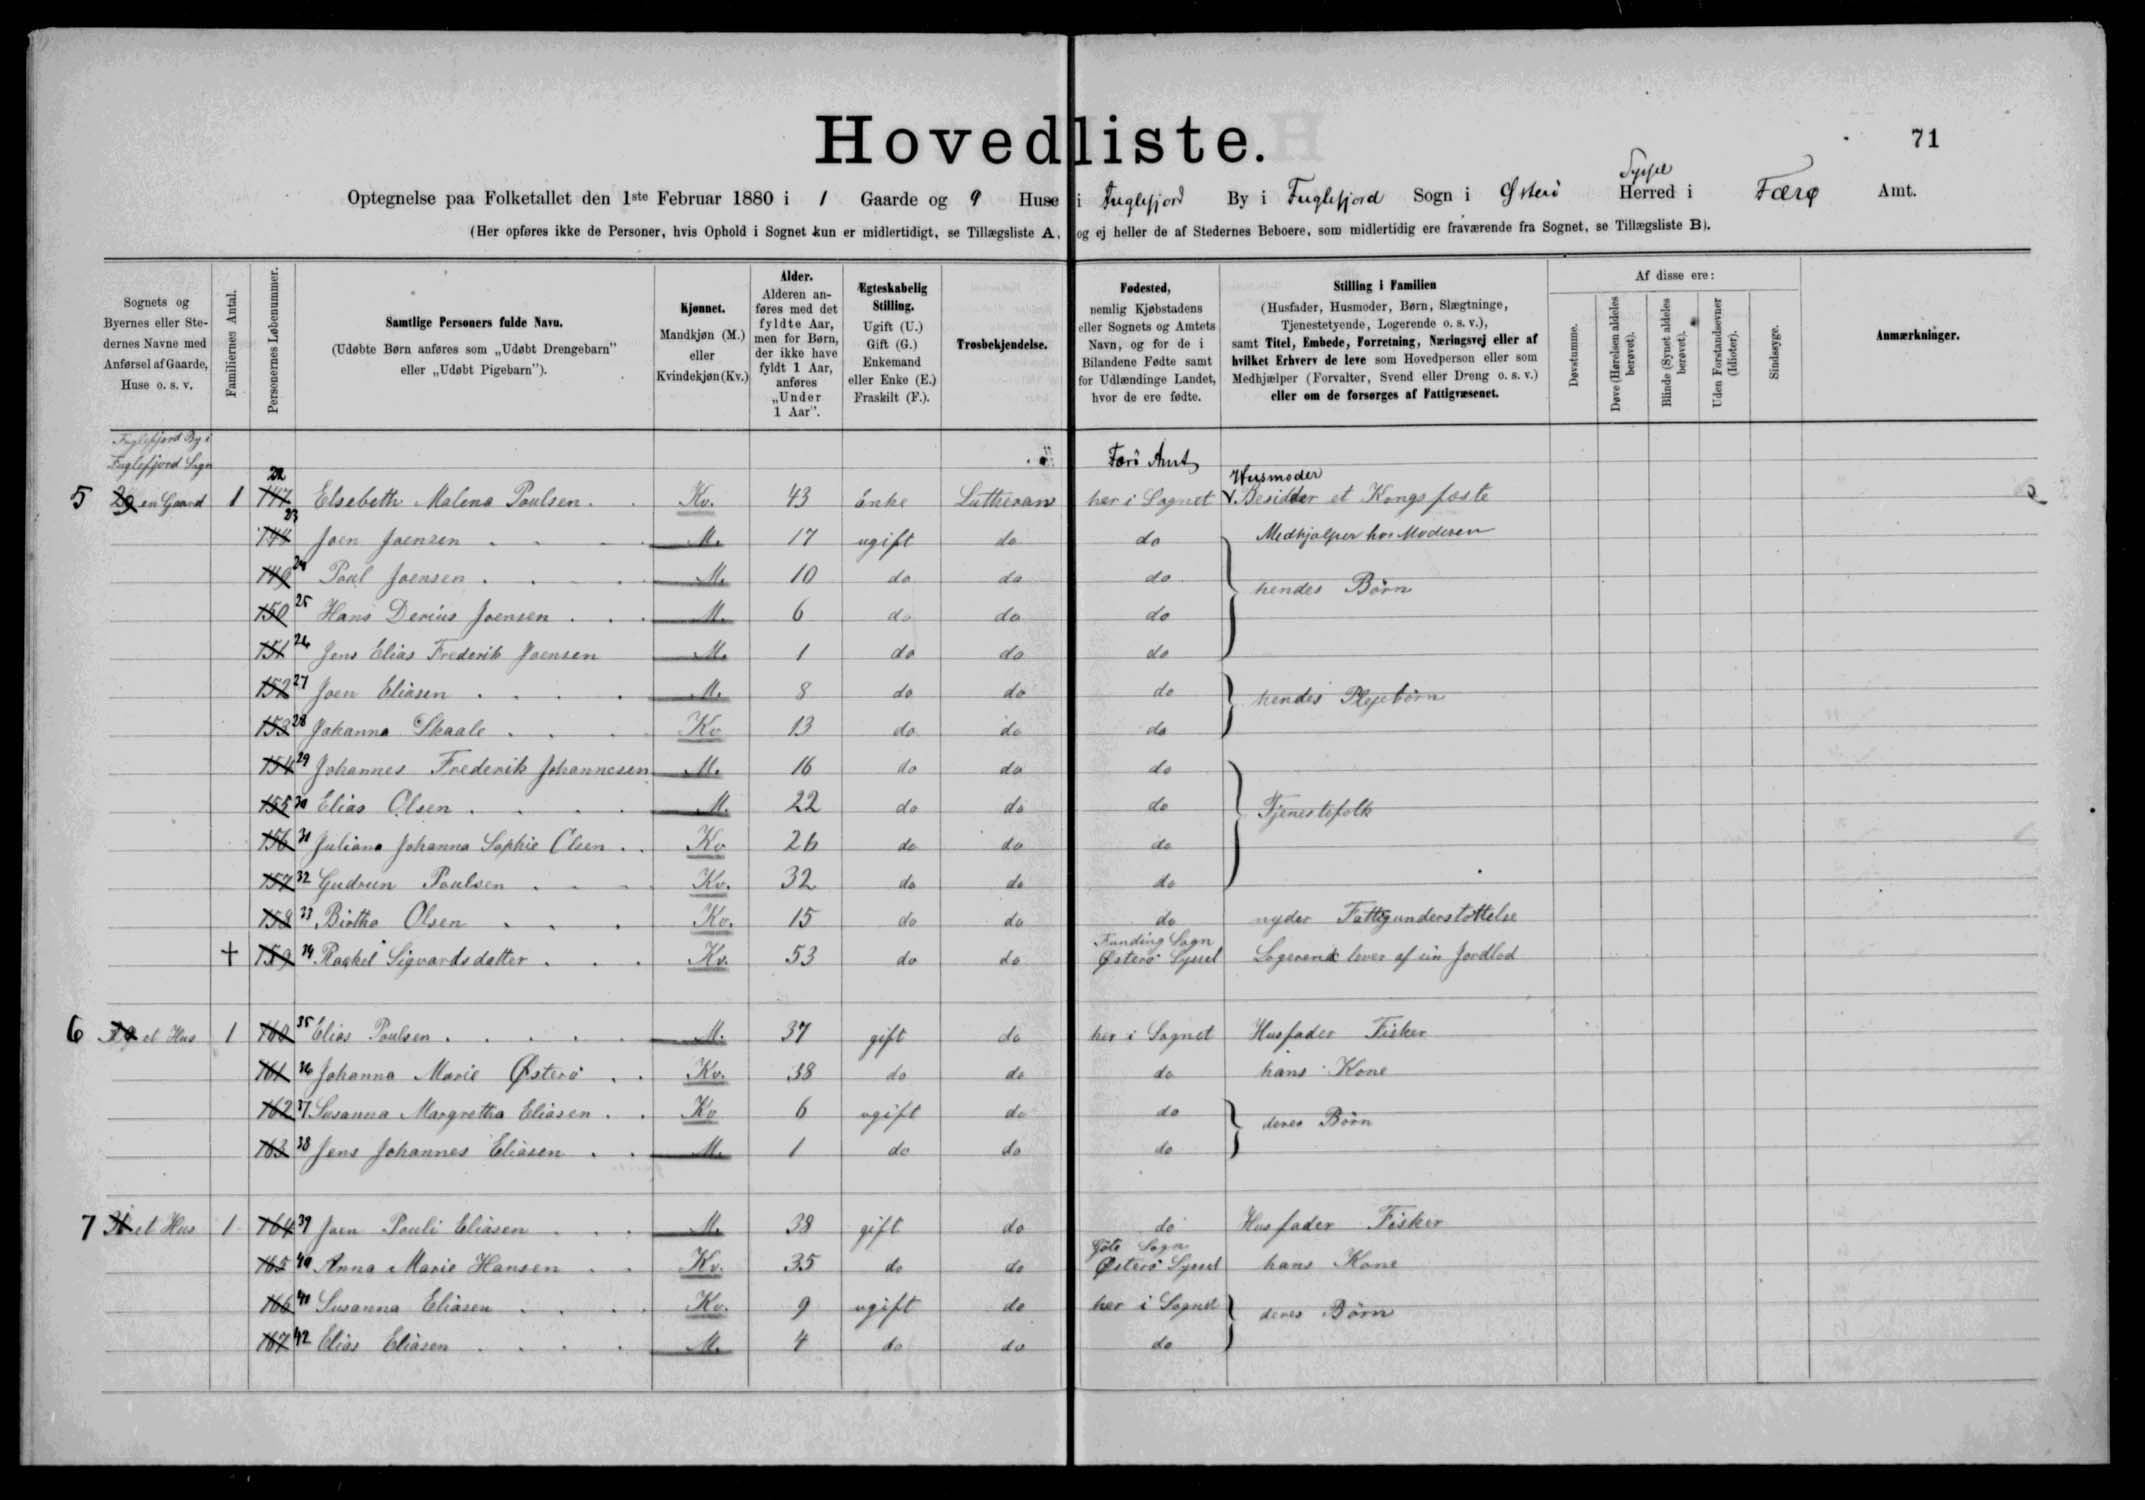 Hovedliste.
71
Optegnelse paa Folketallet den 1ste Februar 1880 i 1 Gaarde og 9 Huse i Fuglefjord By i Fuglefjord Sogn i Østerö Syssel Herred i Færø Amt.
(Her opføres ikke de Personer, hvis Ophold i Sognet kun er midlertidigt, se Tillægsliste A, og ej heller de af Stedernes Beboere, som midlertidig ere fraværende fra Sognet, se Tillægsliste B).
Sognets og Byernes eller Stedernes Navne med Anførsel af Gaarde, Huse o. s. v.
Familiernes Antal.
Personernes Løbenummer.
Samtlige Personers fulde Navn.
(Udøbte Børn anføres som „Udøbt Drengebarn" eller „Udøbt Pigebarn").
Kjønnet.
Mandkjøn (M.) eller Kvindekjøn (Kv.)
Alder.
Alderen anføres med det fyldte Aar, men for Børn, der ikke have fyldt 1 Aar, anføres „Under 1 Aar".
Ægteskabelig Stilling.
Ugift (U.) Gift (G.) Enkemand eller Enke (E.) Fraskilt (F.).
Trosbekjendelse.
Fødested,
nemlig Kjøbstadens eller Sognets og Amtets Navn, og for de i Bilandene Fødte samt for Udlændinge Landet, hvor de ere fødte.
Stilling i Familien
(Husfader, Husmoder, Børn, Slægtninge, Tjenestetyende, Logerende o. s. v.), samt Titel, Embede, Forretning, Næringsvej eller af hvilket Erhverv de leve som Hovedperson eller som Medhjælper (Forvalter, Svend eller Dreng o. s. v.) eller om de forsørges af Fattigvæsenet.
Af disse ere:
Døvstumme.
Døve (Hørelsen aldeles berøvet).
Blinde (Synet aldeles berøvet).
Uden Forstandsevner (Idioter).
Sindssyge.
Anmærkninger.
Fuglefjord By i
Fuglefjord Sogn Færö Amt
5 29 en Gaard 1 147 22 Elsebeth Malena Poulsen Kv. 43 Enke Lutheran her i Sognet Husmoder Besidder et Kongsfæste
148 23 Joen Joensen M. 17 ugift do do Medhjælper hos Moderen
149 24 Poul Joensen M. 10 do do do hendes Börn
150 25 Hans Derius Joensen M. 6 do do do
151 26 Jens Elias Frederik Joensen M. 1 do do do
152 27 Joen Eliasen M. 8 do do do hendes Plejebörn
153 28 Johanna Skaale Kv 13 do do do
154 29 Johannes Frederik Johannesen M. 16 do do do
155 30 Elias Olsen M. 22 do do do Tjenestefolk
156 31 Juliana Johanna Sophie Olsen Kv 26 do do do
157 32 Gudrun Poulsen Kv. 32 do do do
158 33 Birtha Olsen Kv. 15 do do do nyder Fattigunderstöttelse
† 159 34 Rackel Sigvardsdatter Kv. 53 do do Funding Sogn Østerö Syssel Logerende lever af sin Jordlod
6 30 et Hus 1 160 35 Elias Poulsen M. 37 gift do her i Sognet Husfader Fisker
161 36 Johanna Marie Østerö Kv. 38 do do do hans Kone
162 37 Susanna Margretha Eliasen Kv 6 ugift do do deres Börn
163 38 Jens Johannes Eliasen M. 1 do do do
7 31 et Hus 1 164 39 Joen Pouli Eliasen M. 38 gift do do Husfader Fisker
165 40 Anna Marie Hansen Kv. 35 do do Göte Sogn Østerö Syssel hans Kone
166 41 Susanna Eliasen Kv. 9 ugift do her i Sognet deres Börn
167 42 Elias Eliasen M. 4 do do do